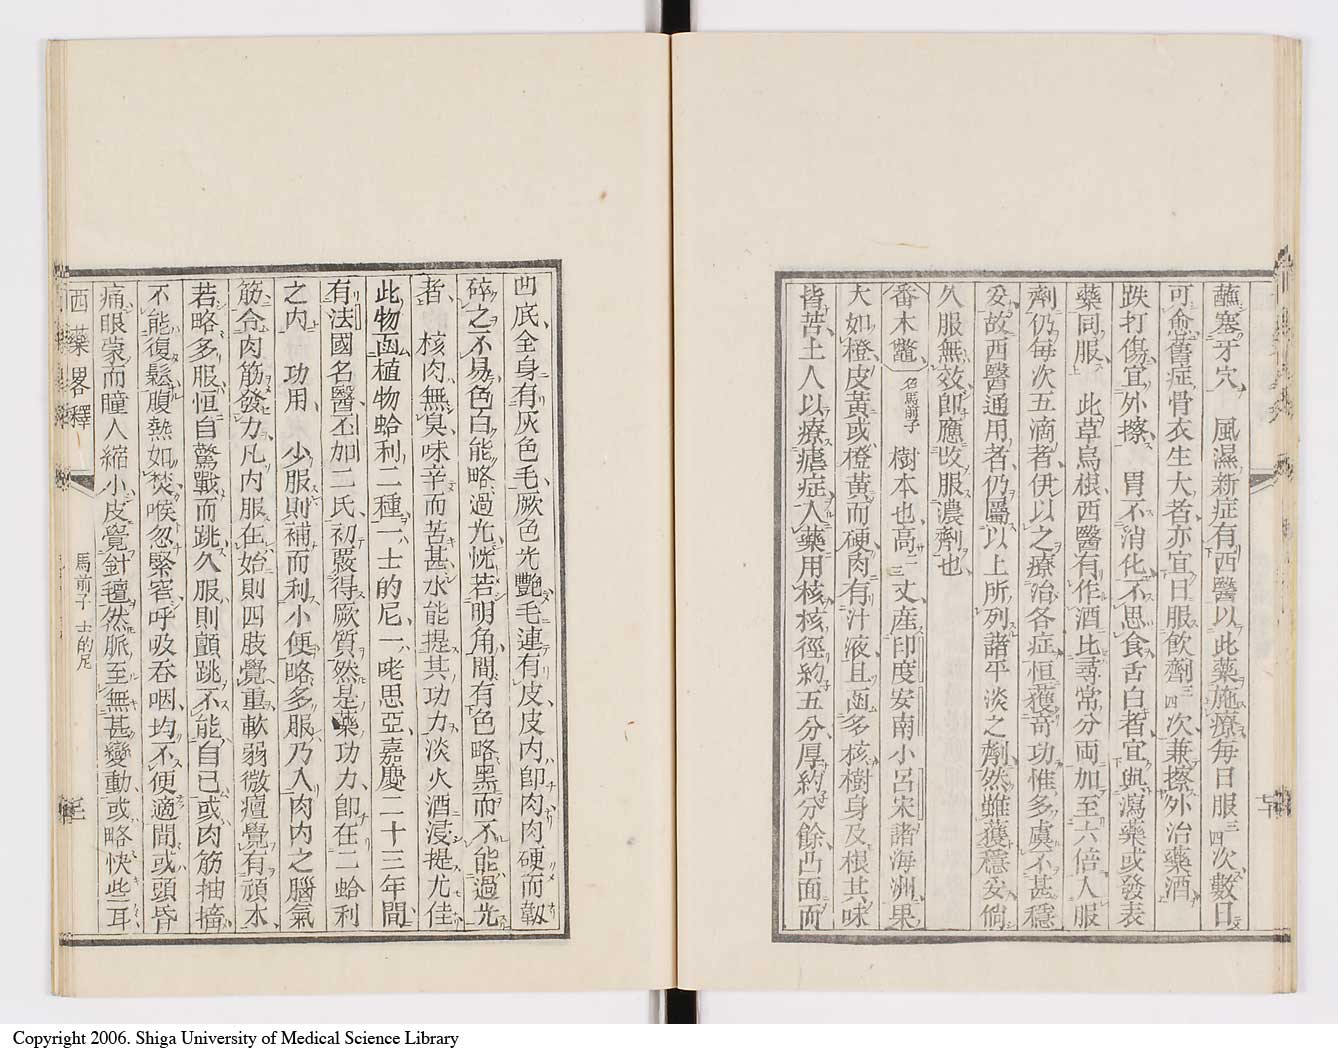 蘸塞牙穴 風濕新症有西醫以此藥施療毎日服三四次數日
可愈舊症骨衣生大者亦宜日服飲劑三四次兼擦外治藥酒
跌打傷宜外擦 胃不消化不思食舌白者宜與瀉藥或發表
藥同服 此草烏根西醫有作酒比尋常分両加至六倍人服
劑仍毎次五滴者伊以之療治各症恒獲奇功惟多虞不甚穩
妥故西醫通用者仍屬以上所列諸平淡之劑然雖獲穩妥倘
久服無效即應改服濃劑也
番木鼈 名馬前子 樹本也高二三丈産印度安南小呂宋諸海洲果
大如橙皮黃或橙黃而硬肉有汁液且函多核樹身及根其味
皆苦土人以療瘧症入藥用核核徑約五分厚約分餘凸面而
凹底全身有灰色毛厥色光艷毛連有皮皮內即肉肉硬而韌
碎之不易色白能略過光恍若明角間有色略黑而不能過光
者 核肉無臭味辛而苦甚水能提其功力淡火酒浸提尤佳
此物函植物蛤利二種一士的尼一咾思亞嘉慶二十三年間
有法國名醫丕加二氏初發得厥質然是藥功力即在二蛤利
之內 功用 少服則補而利小便略多服乃入肉內之腦氣
筋令肉筋發力凡內服在始則四肢覺重軟弱微癉覺有頑木
若略多服恒自驚戰而跳久服則顫跳不能自已或肉筋抽搐
不能復鬆腹熱如焚喉忽緊窘呼吸吞咽均不便適間或頭昏
痛眼蒙而瞳人縮小皮覺針氊然脈至無甚變動或略快些耳
西藥畧釋
馬前子 士的尼